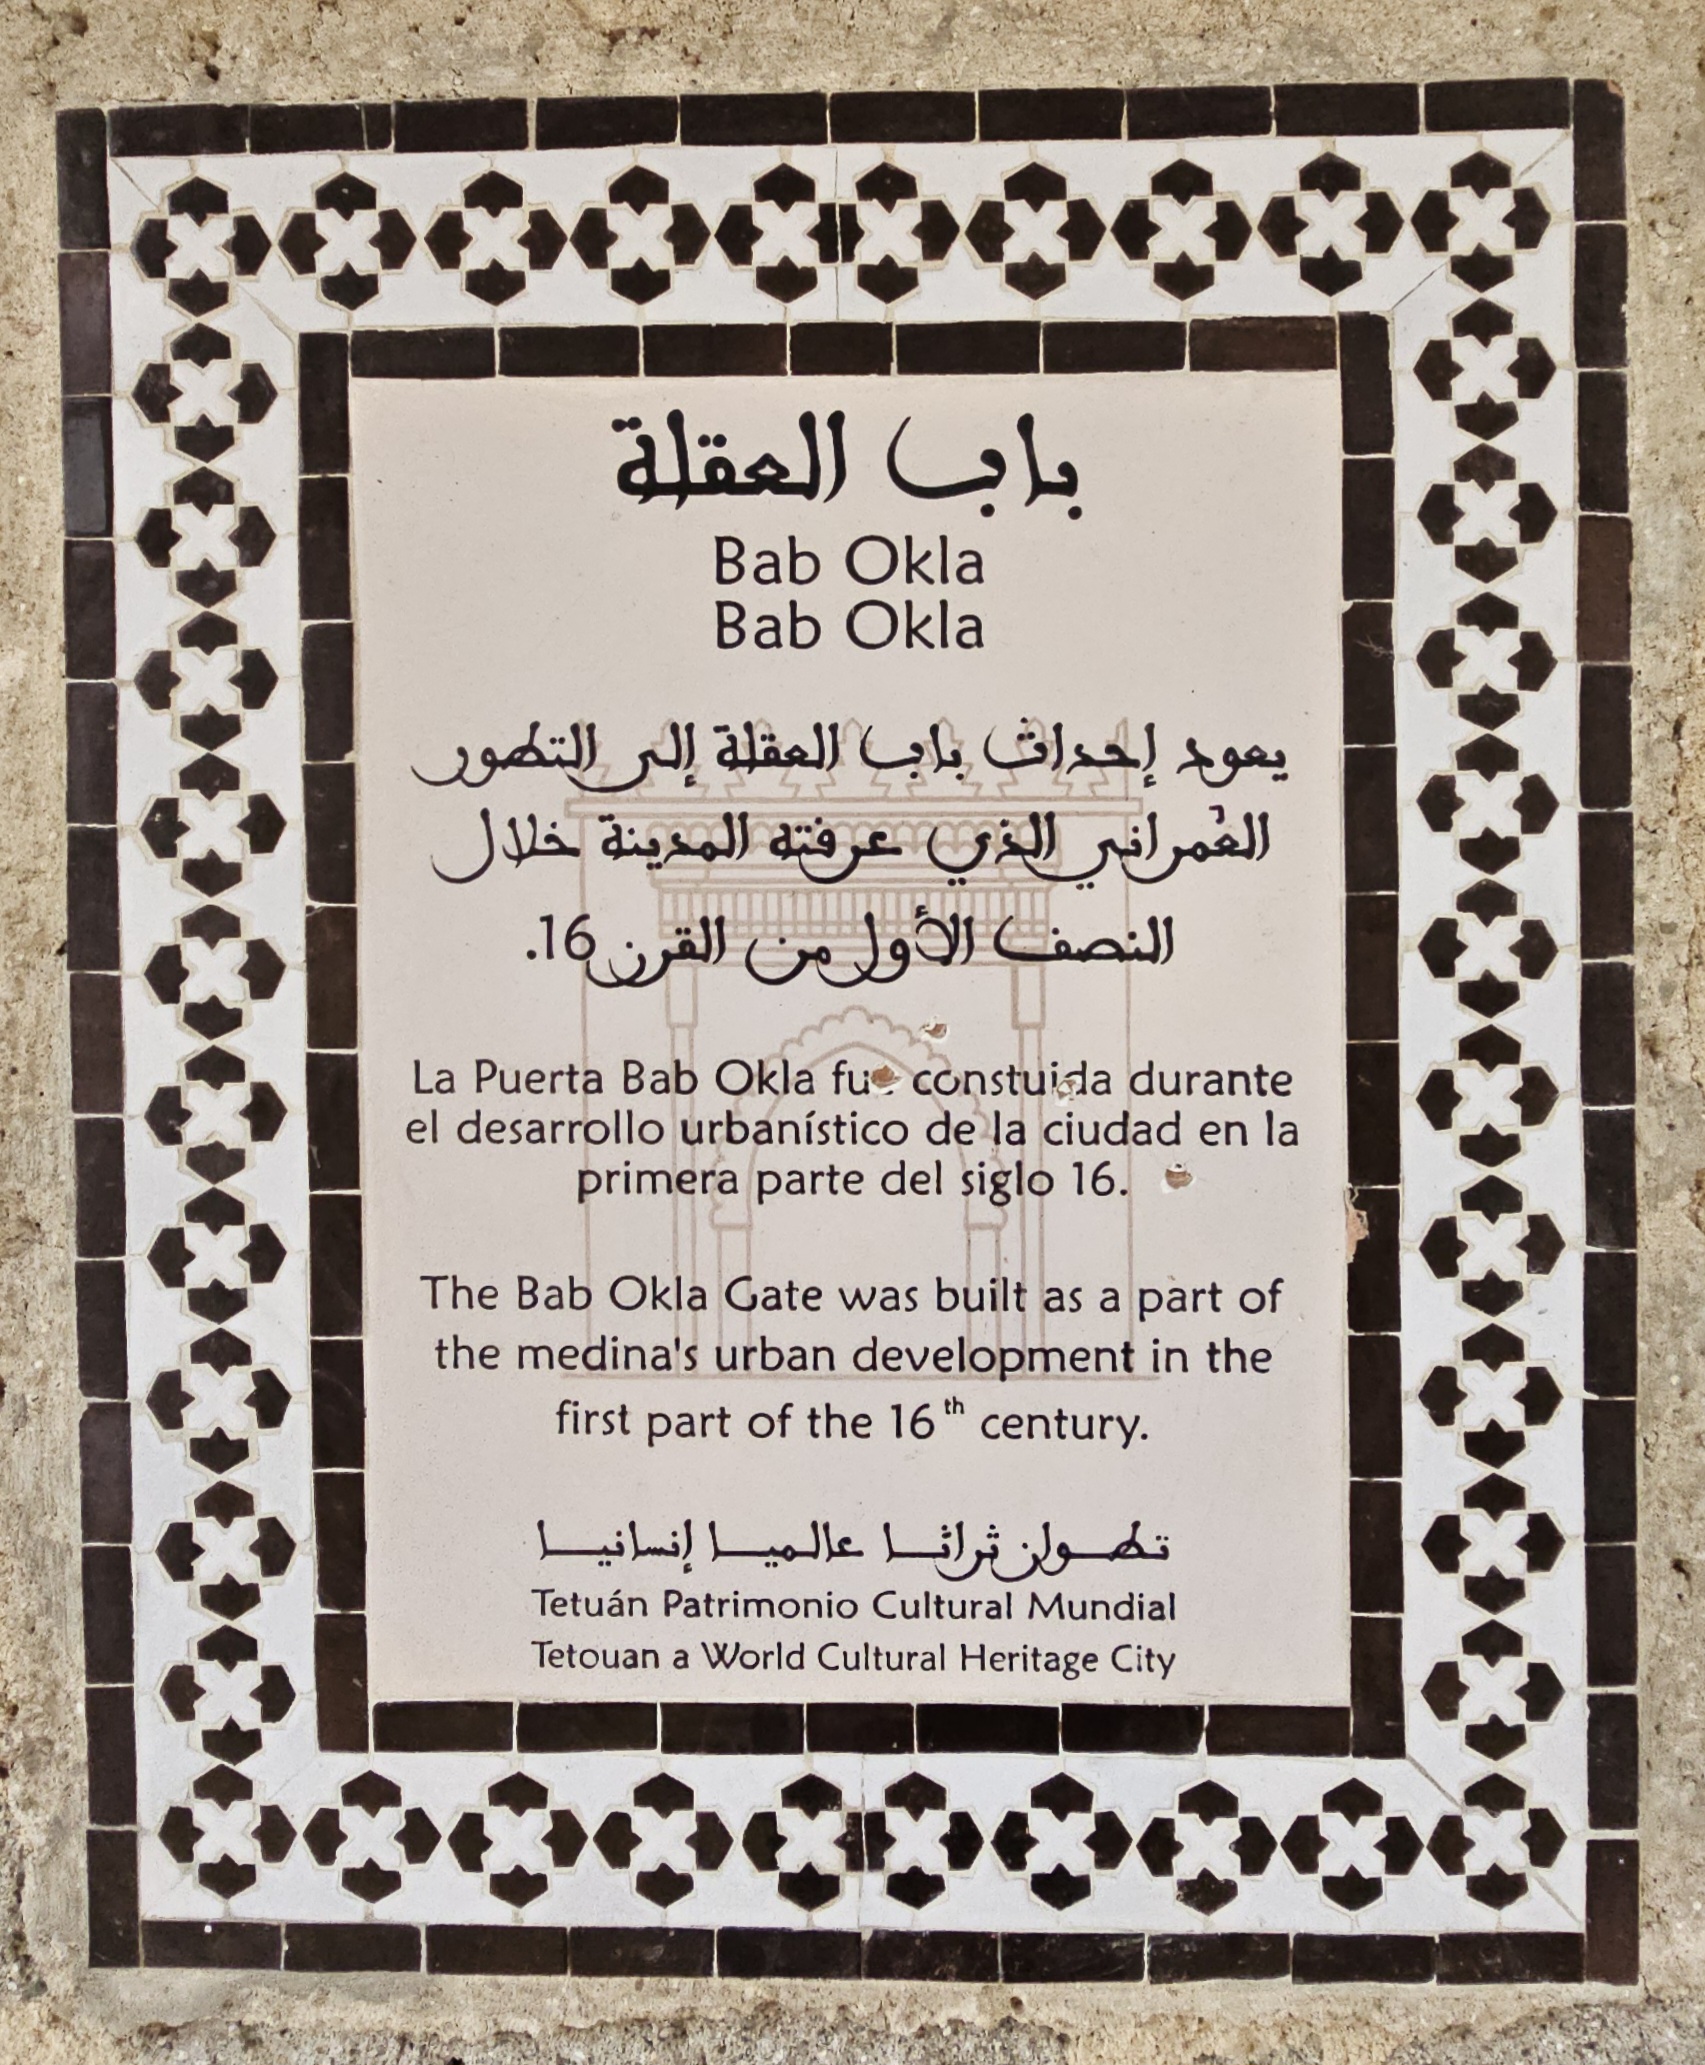 باب العقلة
Bab Okla
Bab Okla
يعود إحداث باب العقلة إلى التطور
العُمراني الذي عرفته المدينة خلال
النصف الأول من القرن 16.
La Puerta Bab Okla fue constuida durante
el desarrollo urbanístico de la ciudad en la
primera parte del siglo 16.
The Bab Okla Gate was built as a part of
the medina's urban development in the
first part of the 16th century.
تطوان ثراثا عالميا إنسانيا
Tetuán Patrimonio Cultural Mundial
Tetouan a World Cultural Heritage City